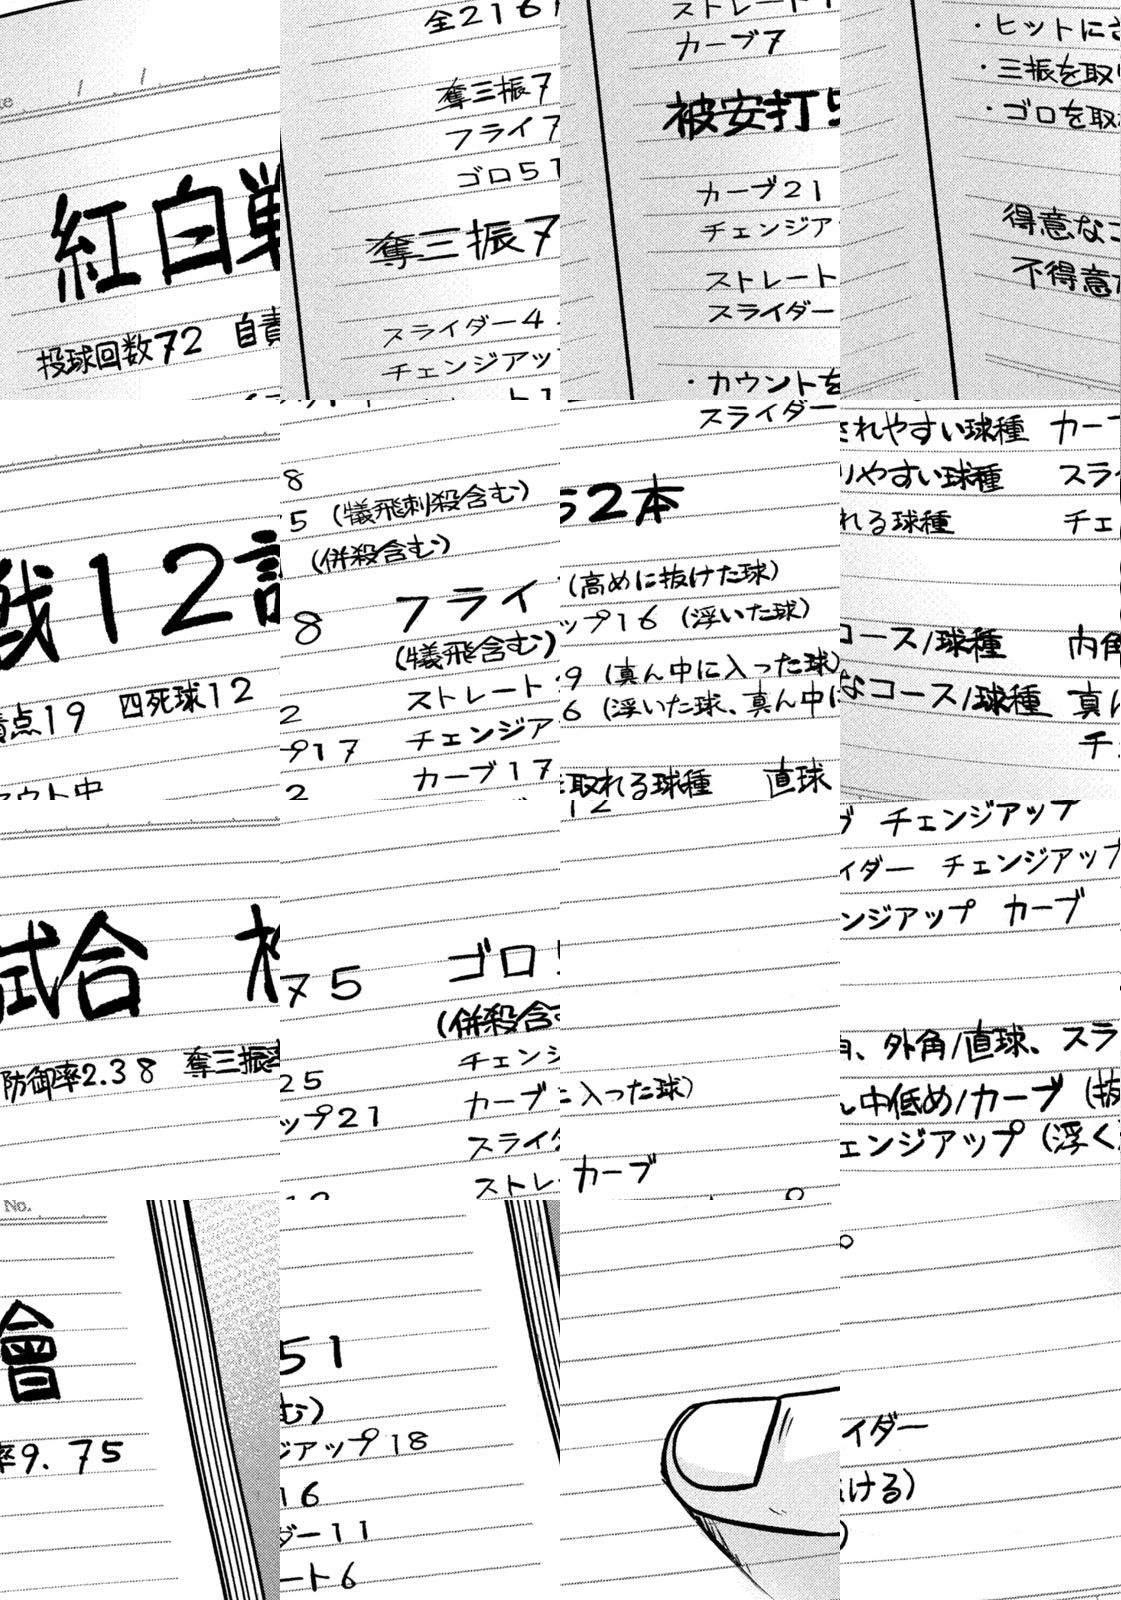 Date / / No.
紅白戦12試合 木曾
投球回数72 自責点19 四死球12 防御率2.38 奪三振率9.75
全216アウト中
奪三振78
フライ75 (犠飛刺殺含む)
ゴロ51 (併殺含む)
奪三振78 フライ75 ゴロ51
(犠飛含む) (併殺含む)
スライダー42 ストレート25 チェンジアップ18
チェンジアップ17 チェンジアップ21 カーブ16
ストレート12 カーブ17 スライダー11
カーブ7 スライダー12 ストレート6
被安打52本
カーブ21 (高めに抜けた球)
チェンジアップ16 (浮いた球)
ストレート9 (真ん中に入った球)
スライダー6 (浮いた球、真ん中に入った球)
・カウントを取れる球種 直球 カーブ
・ヒットにされやすい球種 カーブ チェンジアップ
・三振を取りやすい球種 スライダー チェンジアップ
・ゴロを取れる球種 チェンジアップ カーブ
得意なコース/球種 内角、外角/直球、スライダー
不得意なコース/球種 真ん中低め/カーブ (抜ける)
チェンジアップ (浮く)